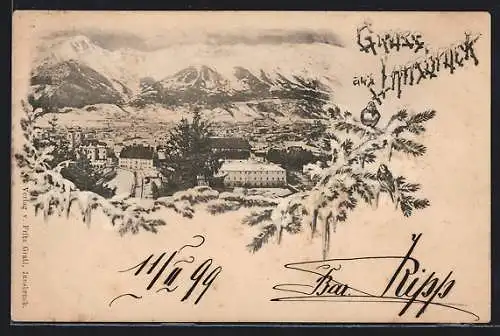 Gruss
aus Innsbruck
Verlag v. Fritz Gratl, Innsbruck.
11/II 99
Bar. Ripp